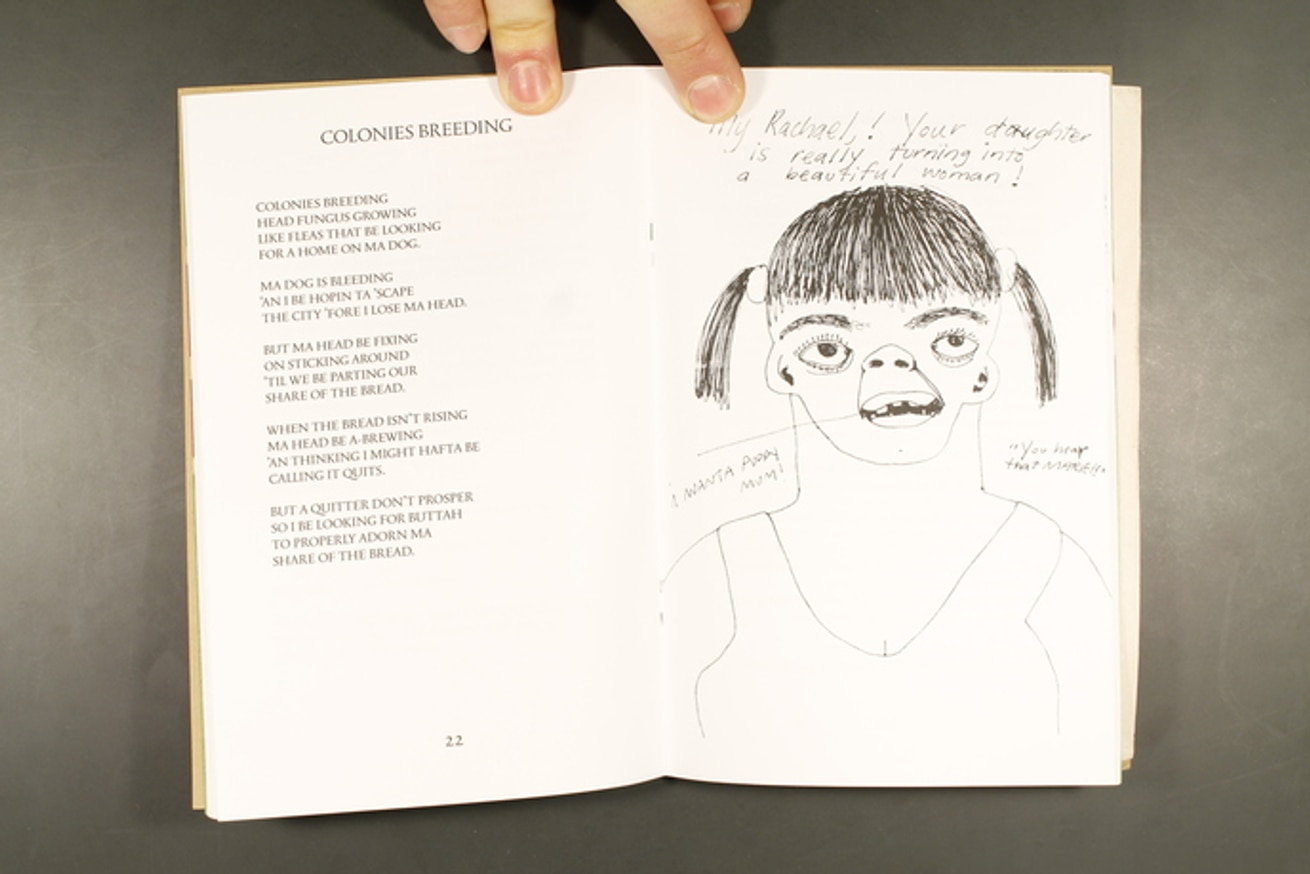 COLONIES BREEDING
COLONIES BREEDING
HEAD FUNGUS GROWING
LIKE FLEAS THAT BE LOOKING
FOR A HOME ON MA DOG.
MA DOG IS BLEEDING
'AN I BE HOPIN TA 'SCAPE
THE CITY 'FORE I LOSE MA HEAD.
BUT MA HEAD BE FIXING
ON STICKING AROUND
'TIL WE BE PARTING OUR
SHARE OF THE BREAD.
WHEN THE BREAD ISN'T RISING
MA HEAD BE A-BREWING
'AN THINKING I MIGHT HAFTA BE
CALLING IT QUITS.
BUT A QUITTER DON'T PROSPER
SO I BE LOOKING FOR BUTTAH
TO PROPERLY ADORN MA
SHARE OF THE BREAD.
22
My Rachael,! Your daughter
is really turning into
a beautiful woman!
I WANTA PUPPY
MUM!
"You hear
that